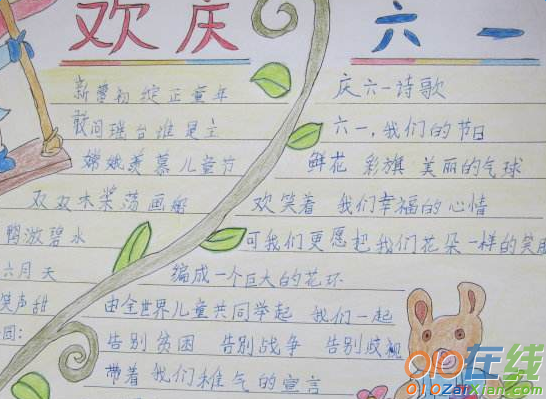 欢庆 六一
新蕾初绽正童年
敢问瑶台谁是主
嫦娥羡慕儿童节
双双木桨荡画船
鸭游碧水
六月天
笑声甜
园:
庆六一诗歌
六一,我们的节日
鲜花 彩旗 美丽的气球
欢笑着 我们幸福的心情
可我们更愿把我们花朵一样的笑
编成一个巨大的花环
由全世界儿童共同举起 我们一起
告别贫困 告别战争 告别歧视
带着我们稚气的宣言
010在线
010zaixian.com